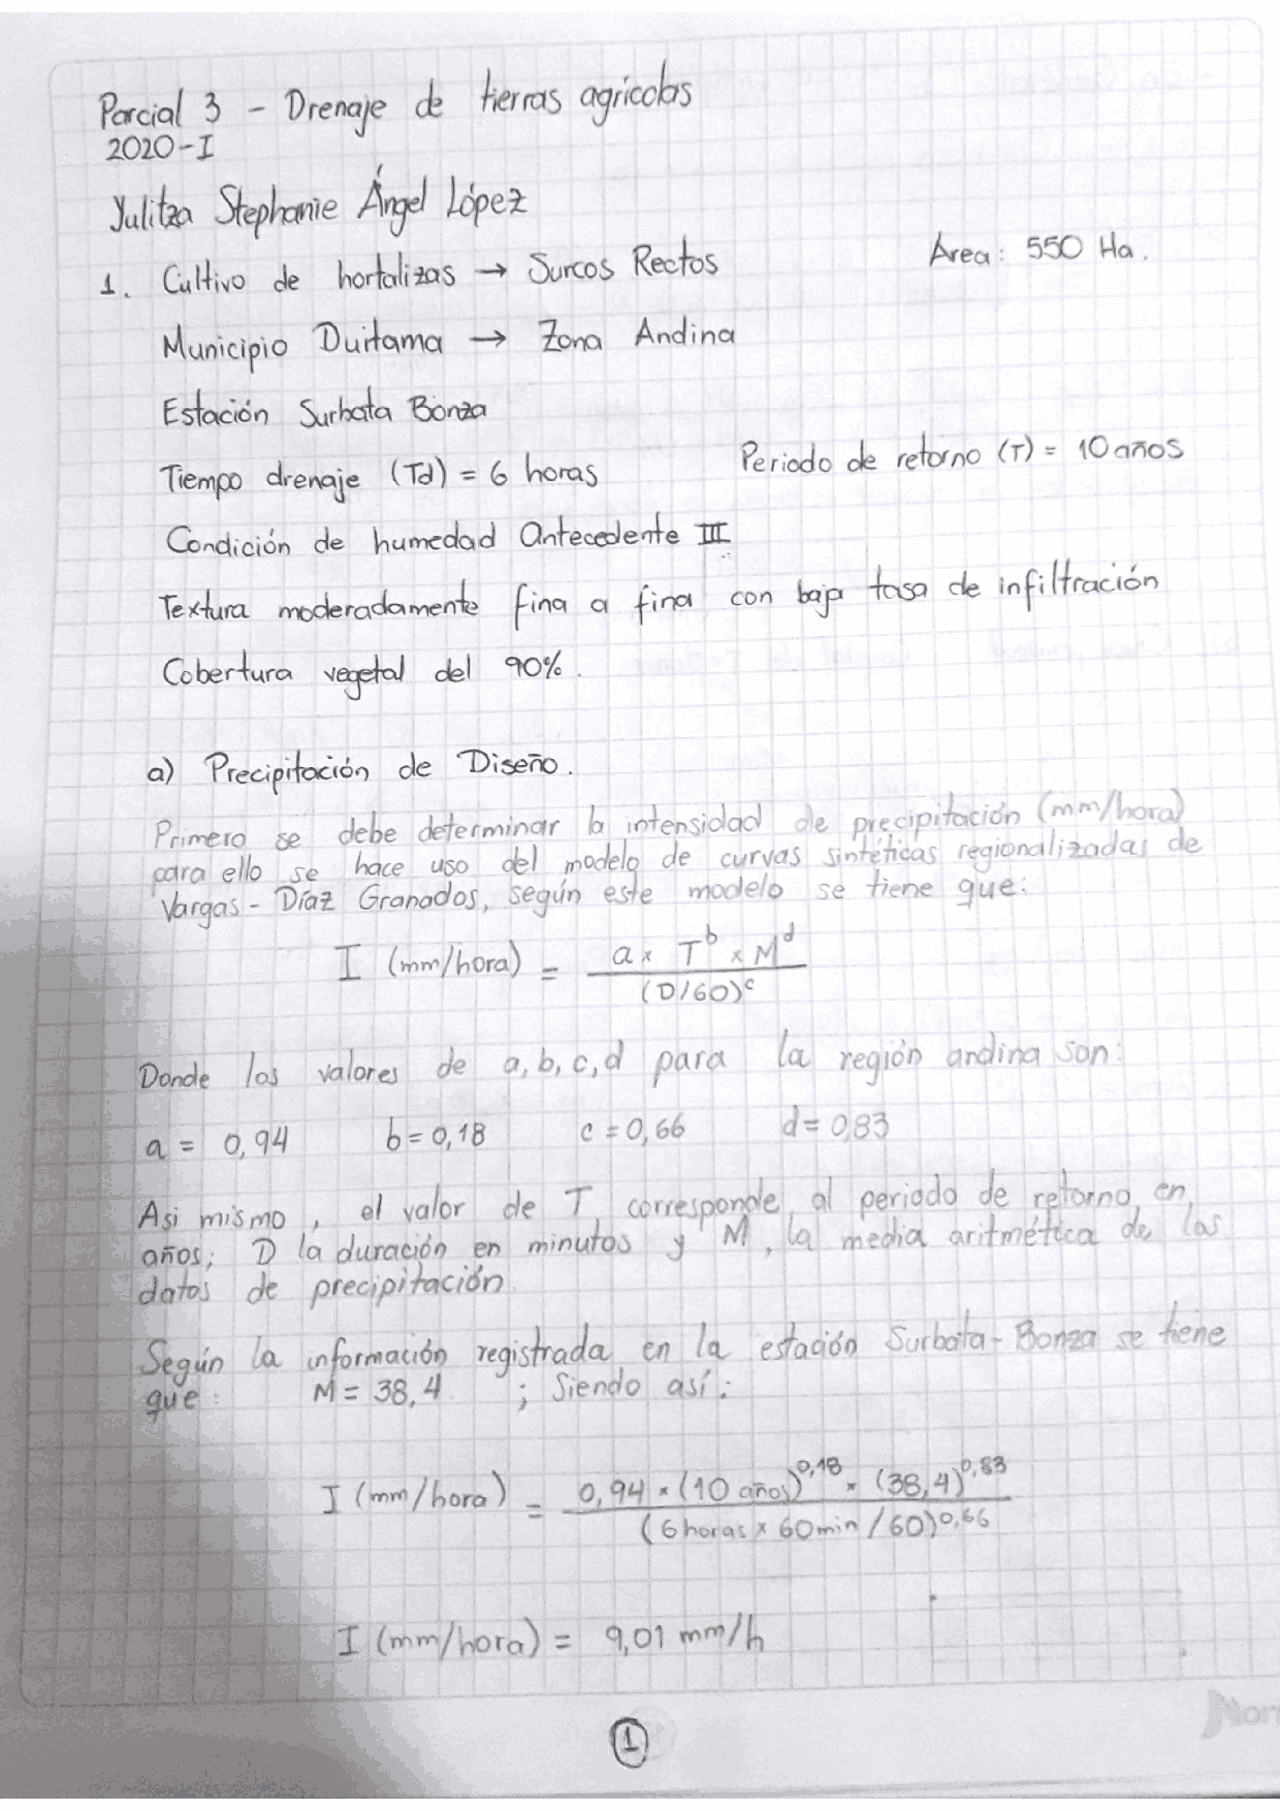 Parcial 3 - Drenaje de tierras agrícolas
2020-I
Yulitza Stephanie Ángel López
Area: 550 Ha.
1. Cultivo de hortalizas → Surcos Rectos
Municipio Duitama → Zona Andina
Estación Surbata Bonza
Tiempo drenaje (Td) = 6 horas
Periodo de retorno (T) = 10 años
Condición de humedad Antecedente III
Textura moderadamente fina a fina con baja tasa de infiltración
Cobertura vegetal del 90%.
a) Precipitación de Diseño.
Primero se debe determinar la intensidad de precipitación (mm/hora)
para ello se hace uso del modelo de curvas sintéticas regionalizadas de
Vargas - Díaz Granados, según este modelo se tiene que:
I (mm/hora) = a × T^b × M^d / (D/60)^c
Donde los valores de a, b, c, d para la región andina son:
a = 0,94 b = 0,18 c = 0,66 d = 0,83
Asi mismo, el valor de T corresponde al periodo de retorno en
años; D la duración en minutos y M, la media aritmética de los
datos de precipitación.
Según la información registrada en la estación Surbata-Bonza se tiene
que: M = 38,4 ; Siendo así:
I (mm/hora) = 0,94 × (10 años)^0,18 × (38,4)^0,83 / (6 horas × 60min / 60)^0,66
I (mm/hora) = 9,01 mm/h
1